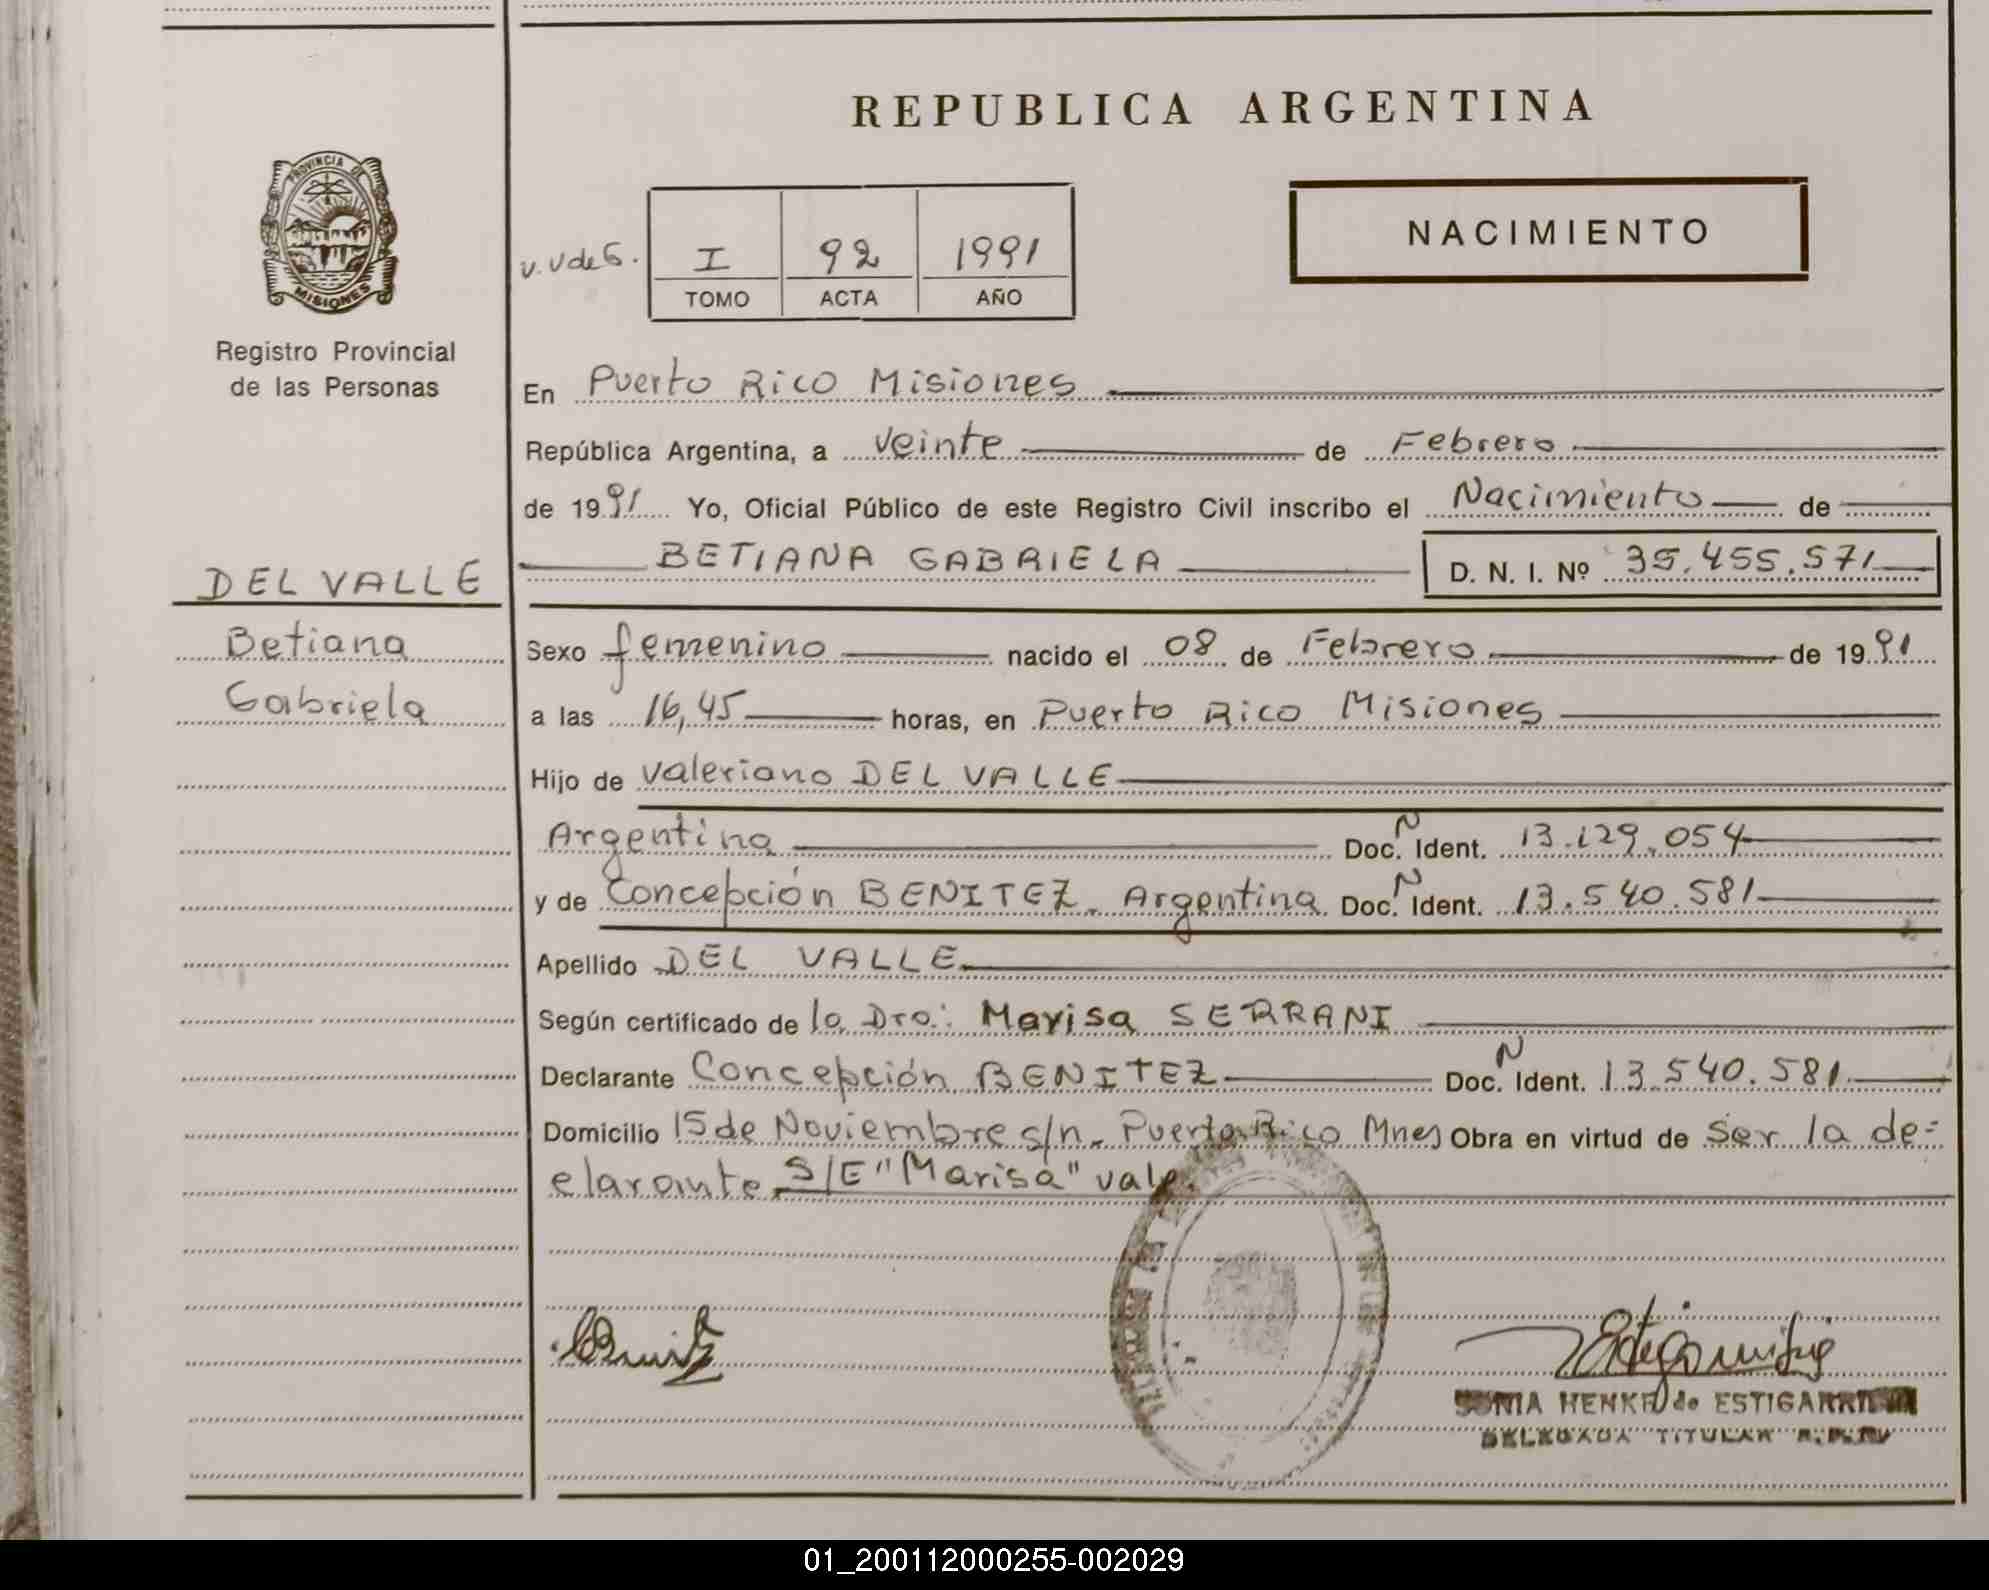 REPUBLICA ARGENTINA
PROVINCIA DE
MISIONES
Registro Provincial
de las Personas
I 92 1991
TOMO ACTA AÑO
NACIMIENTO
En Puerto Rico Misiones
República Argentina, a veinte de Febrero
de 1991 Yo, Oficial Público de este Registro Civil inscribo el Nacimiento de
BETIANA GABRIELA D. N. I. Nº 35.455.571
DEL VALLE
Betiana
Gabriela
Sexo femenino nacido el 08 de Febrero de 1991
a las 16,45 horas, en Puerto Rico Misiones
Hijo de Valeriano DEL VALLE
Argentina Doc. N Ident. 13.129.054
y de Concepción BENITEZ. Argentina Doc. N Ident. 13.540.581
Apellido DEL VALLE
Según certificado de la Dra: Marisa SERRANI
Declarante Concepción BENITEZ Doc. N Ident. 13.540.581
Domicilio 15 de Noviembre s/n. Puerto Rico Mnes Obra en virtud de ser la de=
clarante S/E "Marisa" vale.
SONIA HENKE de ESTIGARRIBIA
DELEGADA TITULAR
01_200112000255-002029